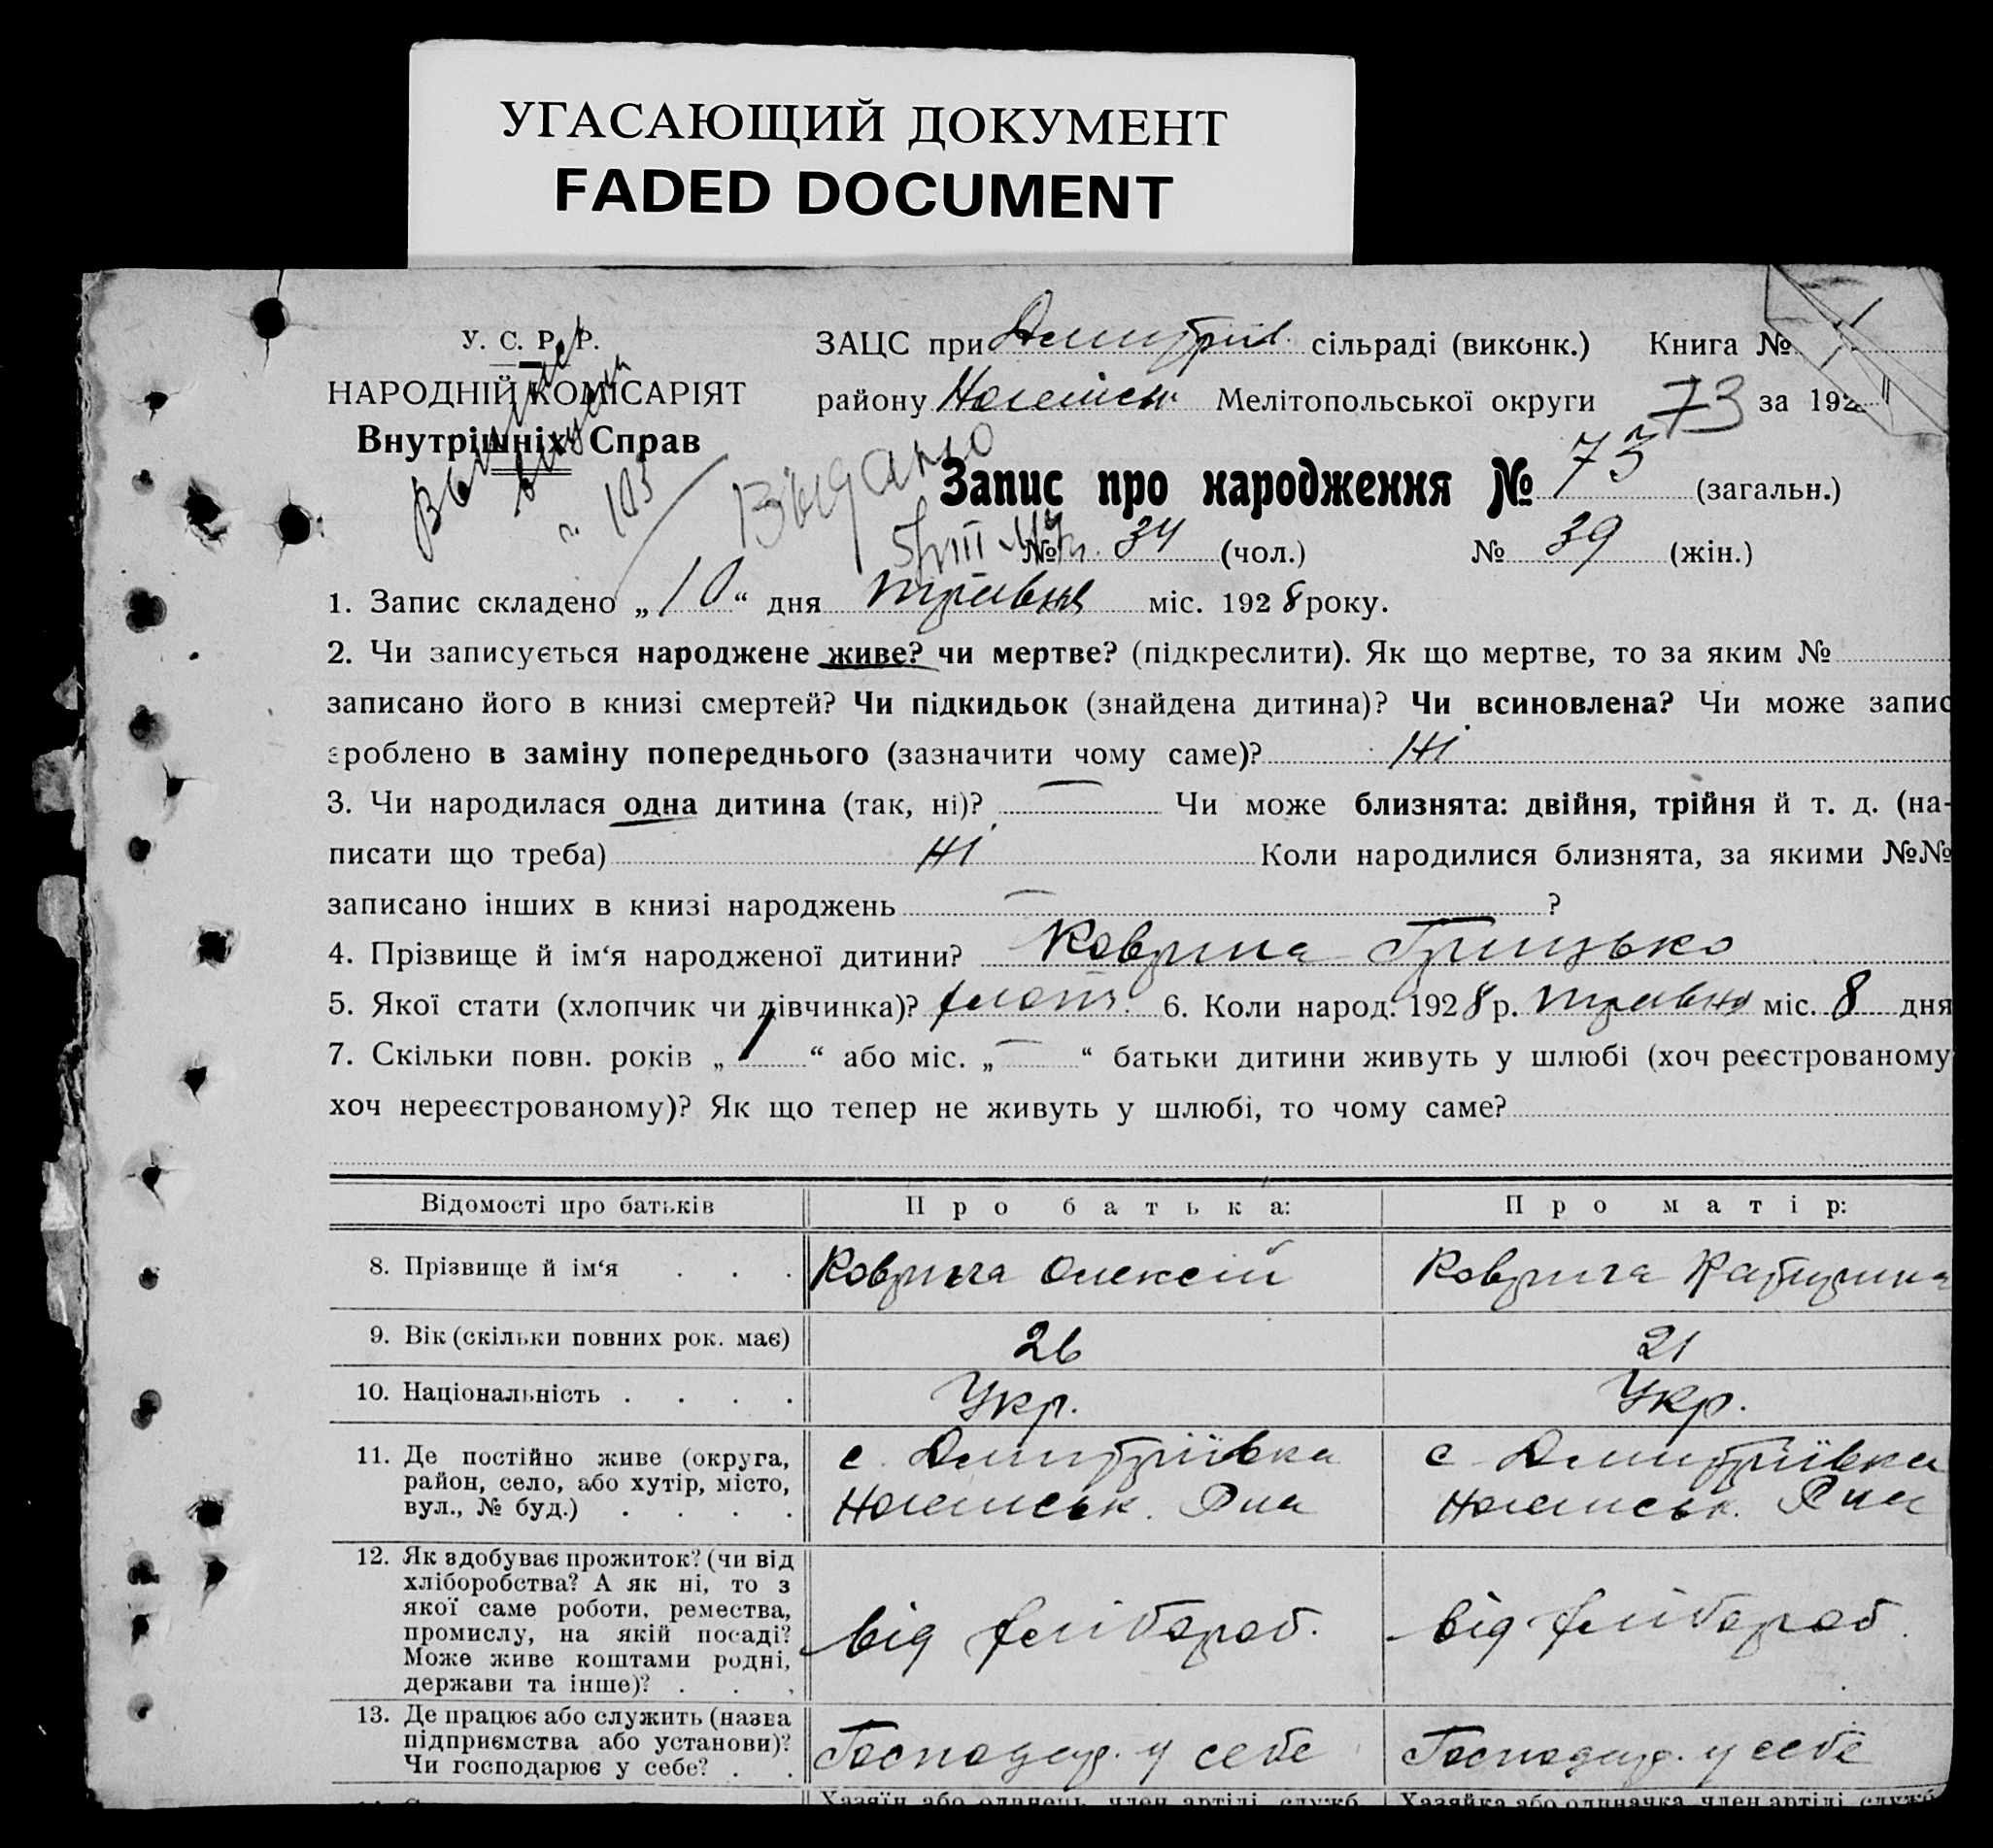 УГАСАЮЩИЙ ДОКУМЕНТ
FADED DOCUMENT
У. С. Р. Р.
НАРОДНІЙ КОМІСАРІЯТ
Внутрішніх Справ
ЗАЦС при Дмитрів. сільраді (виконк.) Книга № 1
району Ногайськ Мелітопольської округи 73 за 192
Видано
Запис про народження № 73 (загальн.)
№ 34 (чол.) № 39 (жін.)
1. Запис складено „10“ дня травня міс. 1928 року.
2. Чи записується народжене живе? чи мертве? (підкреслити). Як що мертве, то за яким №
записано його в книзі смертей? Чи підкидьок (знайдена дитина)? Чи всиновлена? Чи може запис
зроблено в заміну попереднього (зазначити чому саме)? Ні
3. Чи народилася одна дитина (так, ні)? — Чи може близнята: двійня, трійня й т. д. (на-
писати що треба) Ні Коли народилися близнята, за якими №№
записано інших в книзі народжень — ?
4. Прізвище й ім‘я народженої дитини? Коврига Грицько
5. Якої стати (хлопчик чи дівчинка)? хлопч. 6. Коли народ. 1928 р. травня міс. 8 дня
7. Скільки повн. років „1“ або міс. „—“ батьки дитини живуть у шлюбі (хоч реєстрованому
хоч нереєстрованому)? Як що тепер не живуть у шлюбі, то чому саме?
Відомості про батьків Про батька: Про матір:
8. Прізвище й ім‘я . . . Коврига Олексій Коврига Катерина
9. Вік (скільки повних рок. має) 26 21
10. Національність . . . . Укр. Укр.
11. Де постійно живе (округа,
район, село, або хутір, місто,
вул., № буд.) . . . .
с. Дмитріївка
Ногайськ. Р-на
с. Дмитріївка
Ногайськ. Р-на
12. Як здобуває прожиток? (чи від
хліборобства? А як ні, то з
якої саме роботи, ремества,
промислу, на якій посаді?
Може живе коштами родні,
держави та інше)? . . .
від хліборoб.
від хлібороб.
13. Де працює або служить (назва
підприємства або установи)?
Чи господарює у себе? . .
Господар. у себе
Господар. у себе
Хазяїн або одинець, член артілі, служб. Хазяйка або одиначка, член артілі, служб